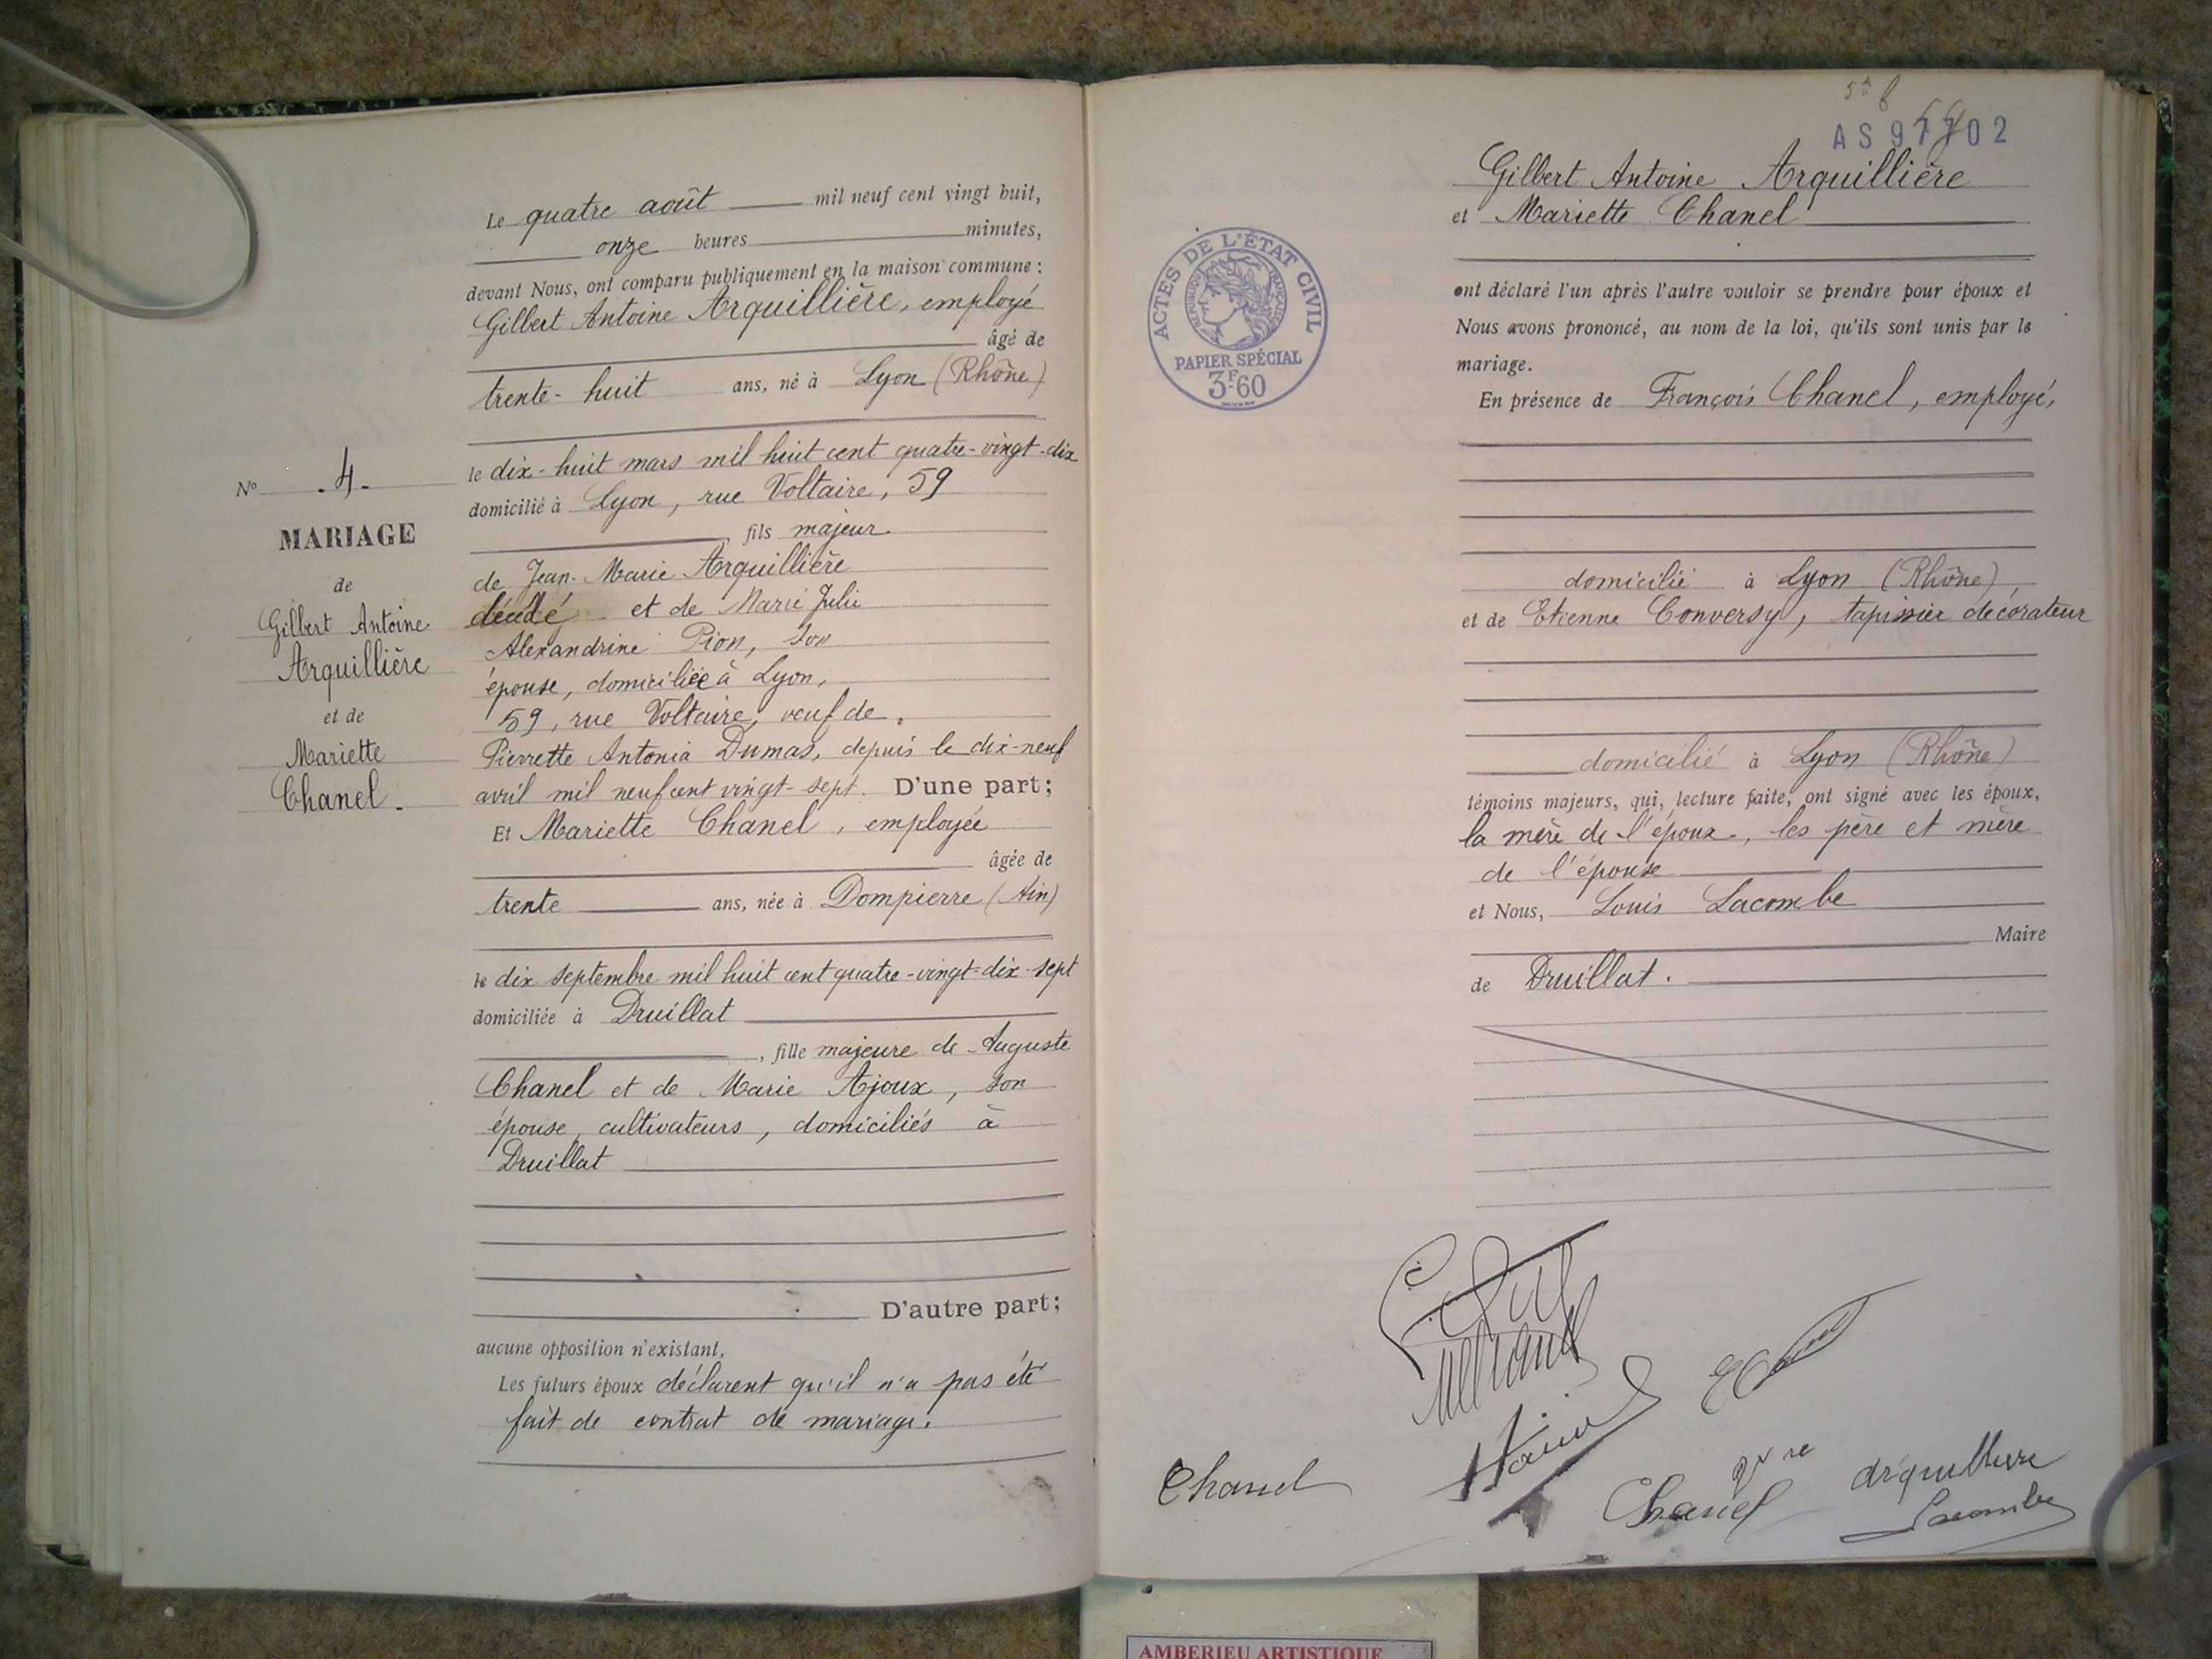 Nº 4
MARIAGE
de
Gilbert Antoine
Arquillière
et de
Mariette
Chanel
Le quatre août mil neuf cent vingt huit,
onze heures minutes,
devant Nous, ont comparu publiquement en la maison commune :
Gilbert Antoine Arquillière, employé
âgé de
trente-huit ans, né à Lyon (Rhône)
le dix-huit mars mil huit cent quatre-vingt-dix
domicilié à Lyon, rue Voltaire, 59
, fils majeur
de Jean-Marie Arquillière
décédé et de Marie Julie
Alexandrine Pion, son
épouse, domiciliée à Lyon,
59, rue Voltaire, veuf de
Pierrette Antonia Dumas, depuis le dix-neuf
avril mil neuf cent vingt-sept. D'une part;
Et Mariette Chanel, employée
âgée de
trente ans, née à Dompierre (Ain)
le dix septembre mil huit cent quatre-vingt-dix-sept
domiciliée à Druillat
, fille majeure de Auguste
Chanel et de Marie Ajoux, son
épouse, cultivateurs, domiciliés à
Druillat
D'autre part;
aucune opposition n'existant,
Les futurs époux déclarent qu'il n'a pas été
fait de contrat de mariage.
AS 97702
Gilbert Antoine Arquillière
et Mariette Chanel
ont déclaré l'un après l'autre vouloir se prendre pour époux et
Nous avons prononcé, au nom de la loi, qu'ils sont unis par le
mariage.
En présence de François Chanel, employé,
domicilié à Lyon (Rhône),
et de Etienne Conversy, tapissier décorateur
domicilié à Lyon (Rhône)
témoins majeurs, qui, lecture faite, ont signé avec les époux,
la mère de l'époux, les père et mère
de l'épouse
et Nous, Louis Lacombe
Maire
de Druillat.
ACTES DE L'ÉTAT CIVIL
RÉPUBLIQUE FRANÇAISE
PAPIER SPÉCIAL
3F60
Chanel
Chanel
Arquillière
Lacombe
AMBERIEU ARTISTIQUE